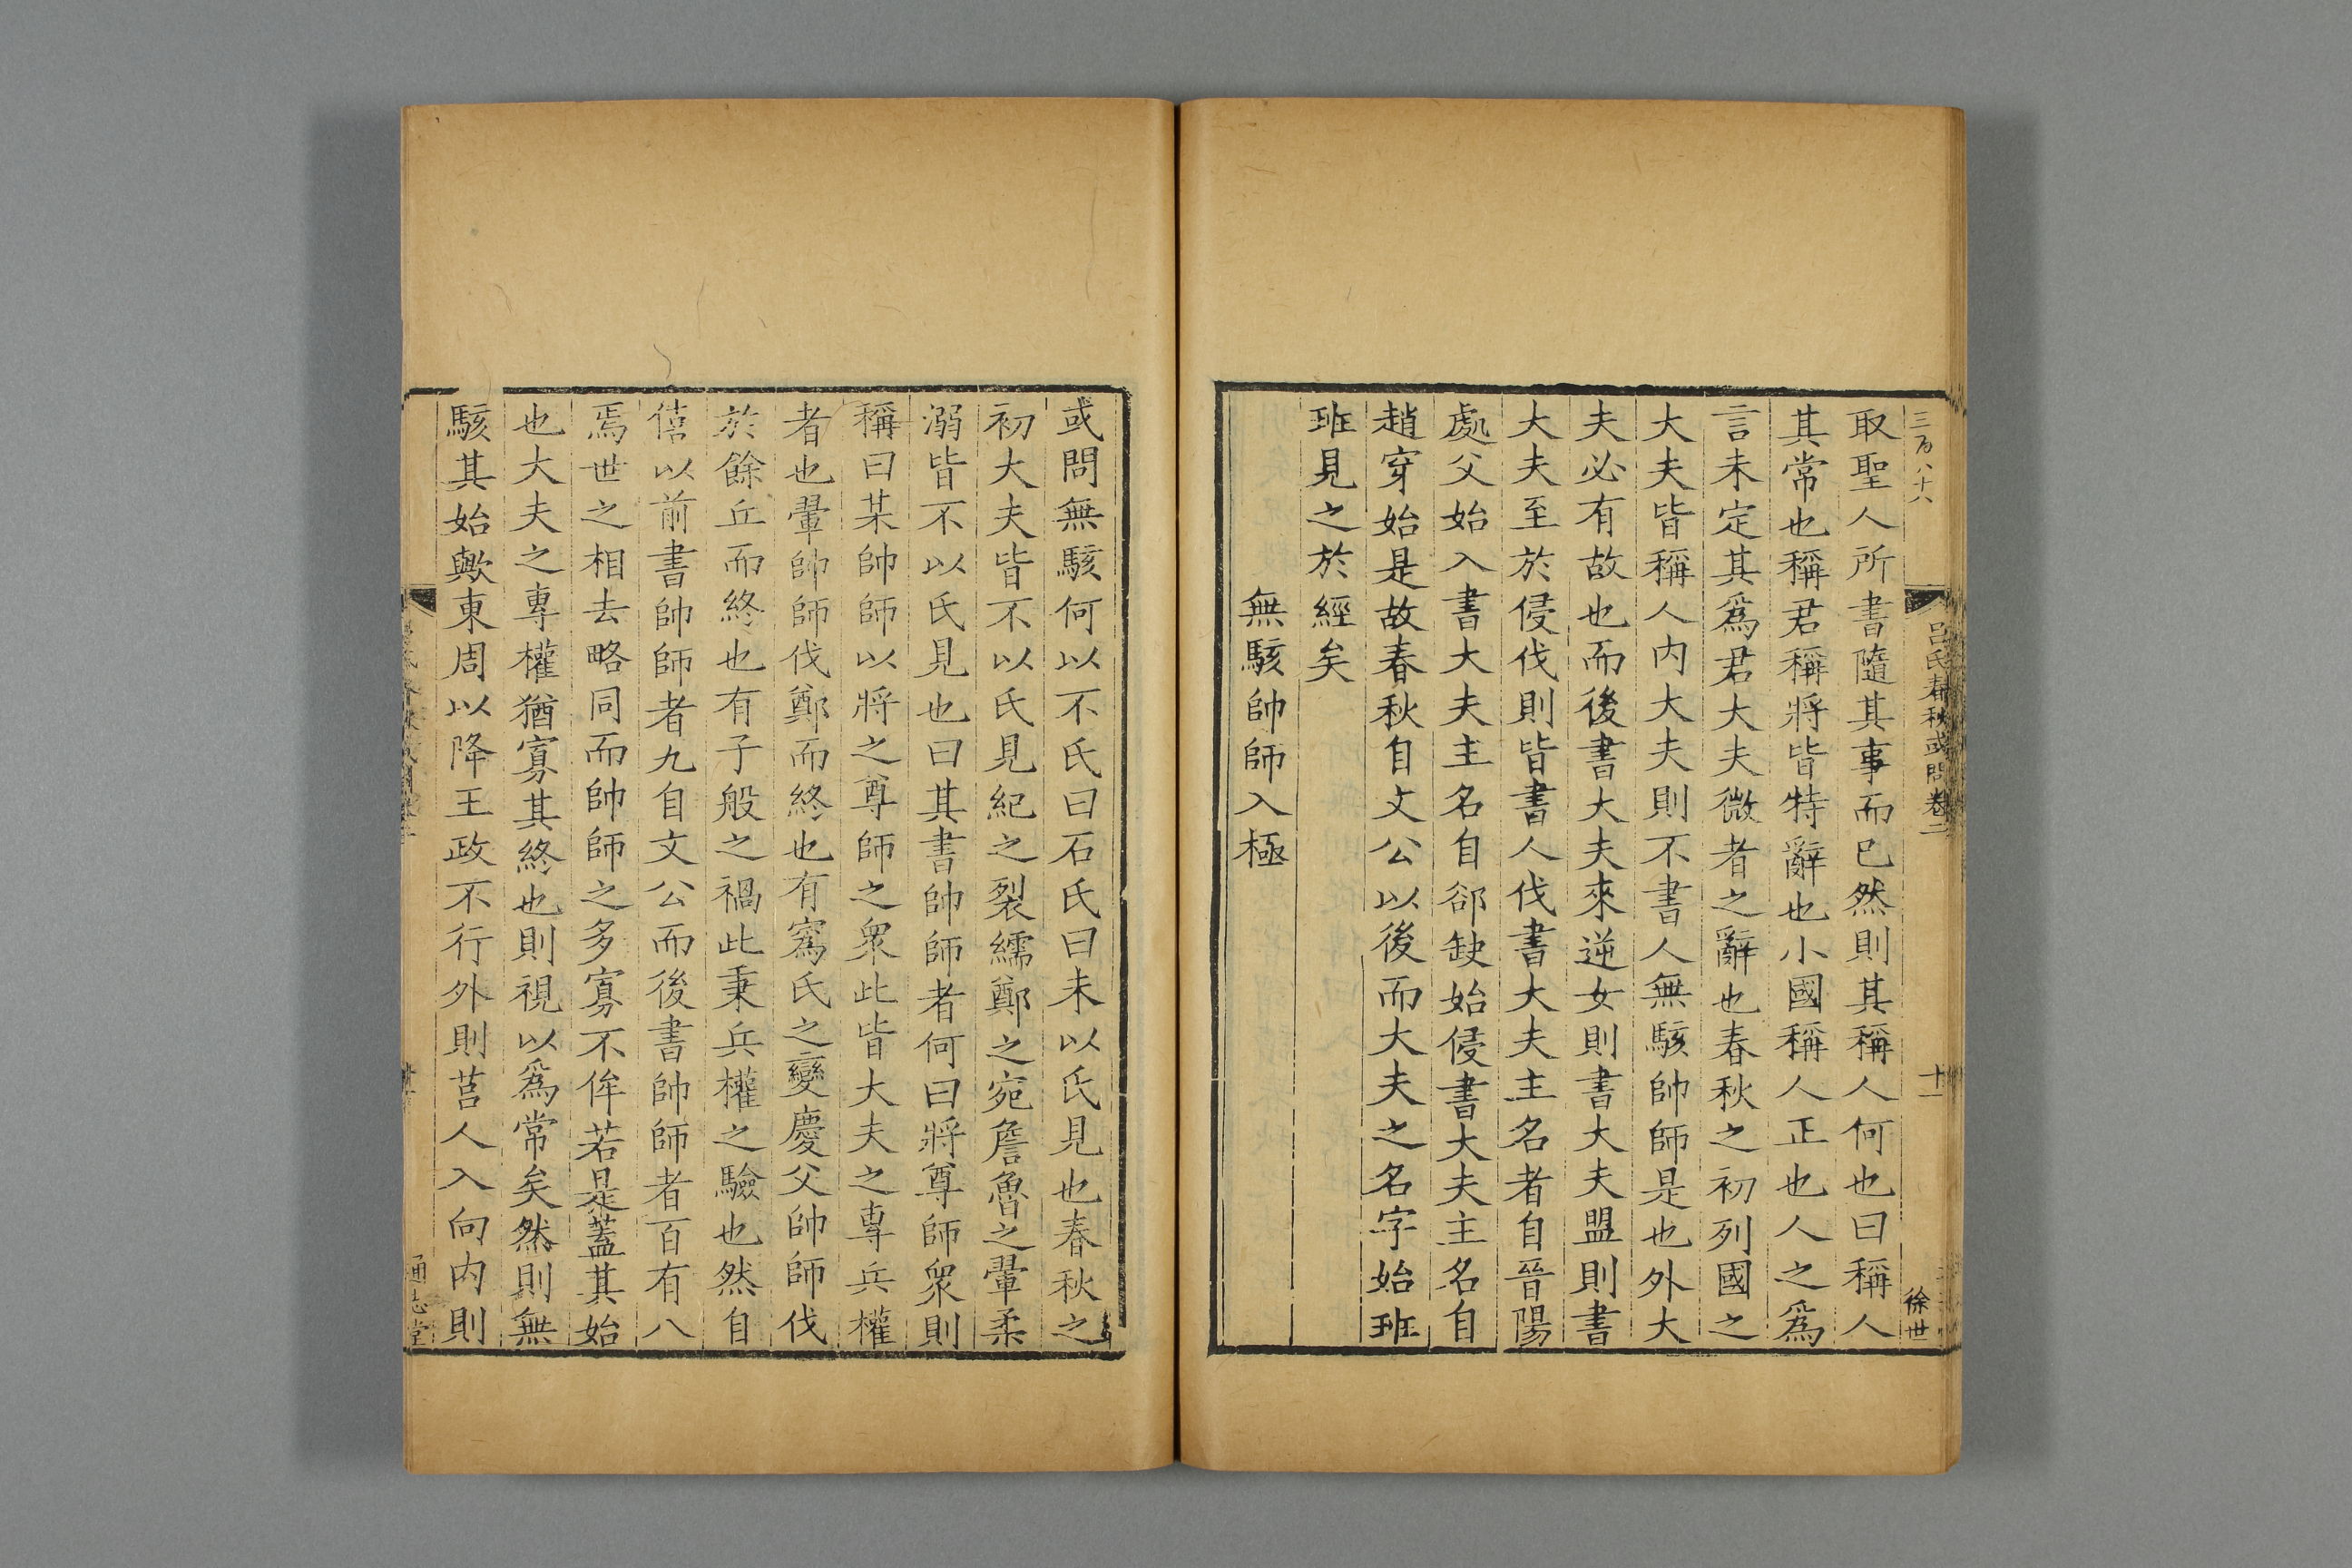 三百八十八
呂氏春秋或問卷二
十一
徐世
取聖人所書隨其事而已然則其稱人何也曰稱人
其常也稱君稱將皆特辭也小國稱人正也人之爲
言未定其爲君大夫微者之辭也春秋之初列國之
大夫皆稱人内大夫則不書人無駭帥師是也外大
夫必有故也而後書大夫來逆女則書大夫盟則書
大夫至於侵伐則皆書人伐書大夫主名者自晉陽
處父始入書大夫主名自郤缺始侵書大夫主名自
趙穿始是故春秋自文公以後而大夫之名字始班
班見之於經矣
無駭帥師入極
或問無駭何以不氏曰石氏曰未以氏見也春秋之
初大夫皆不以氏見紀之裂繻鄭之宛詹魯之翬柔
溺皆不以氏見也曰其書帥師者何曰將尊師衆則
稱曰某帥師以將之尊師之衆此皆大夫之專兵權
者也翬帥師伐鄭而終也有寪氏之變慶父帥師伐
於餘丘而終也有子般之禍此秉兵權之驗也然自
僖以前書帥師者九自文公而後書帥師者百有八
焉世之相去略同而帥師之多寡不侔若是蓋其始
也大夫之專權猶寡其終也則視以爲常矣然則無
駭其始歟東周以降王政不行外則莒人入向内則
通志堂